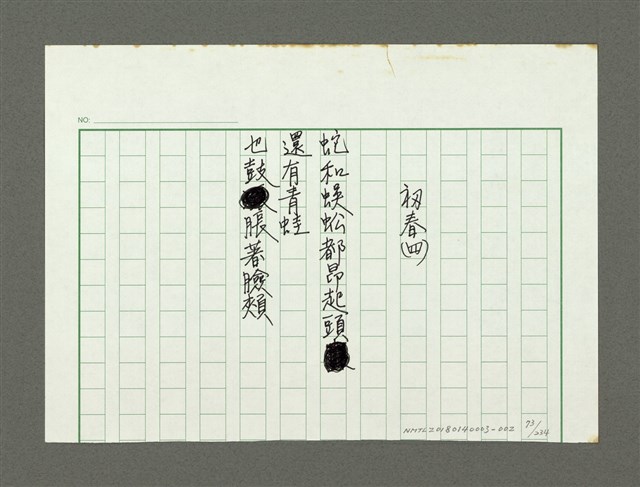 NO:
初春(四)
蛇和蜈蚣都昂起頭
還有青蛙
也鼓脹著臉頰
NMTL20180140003-002
73/234